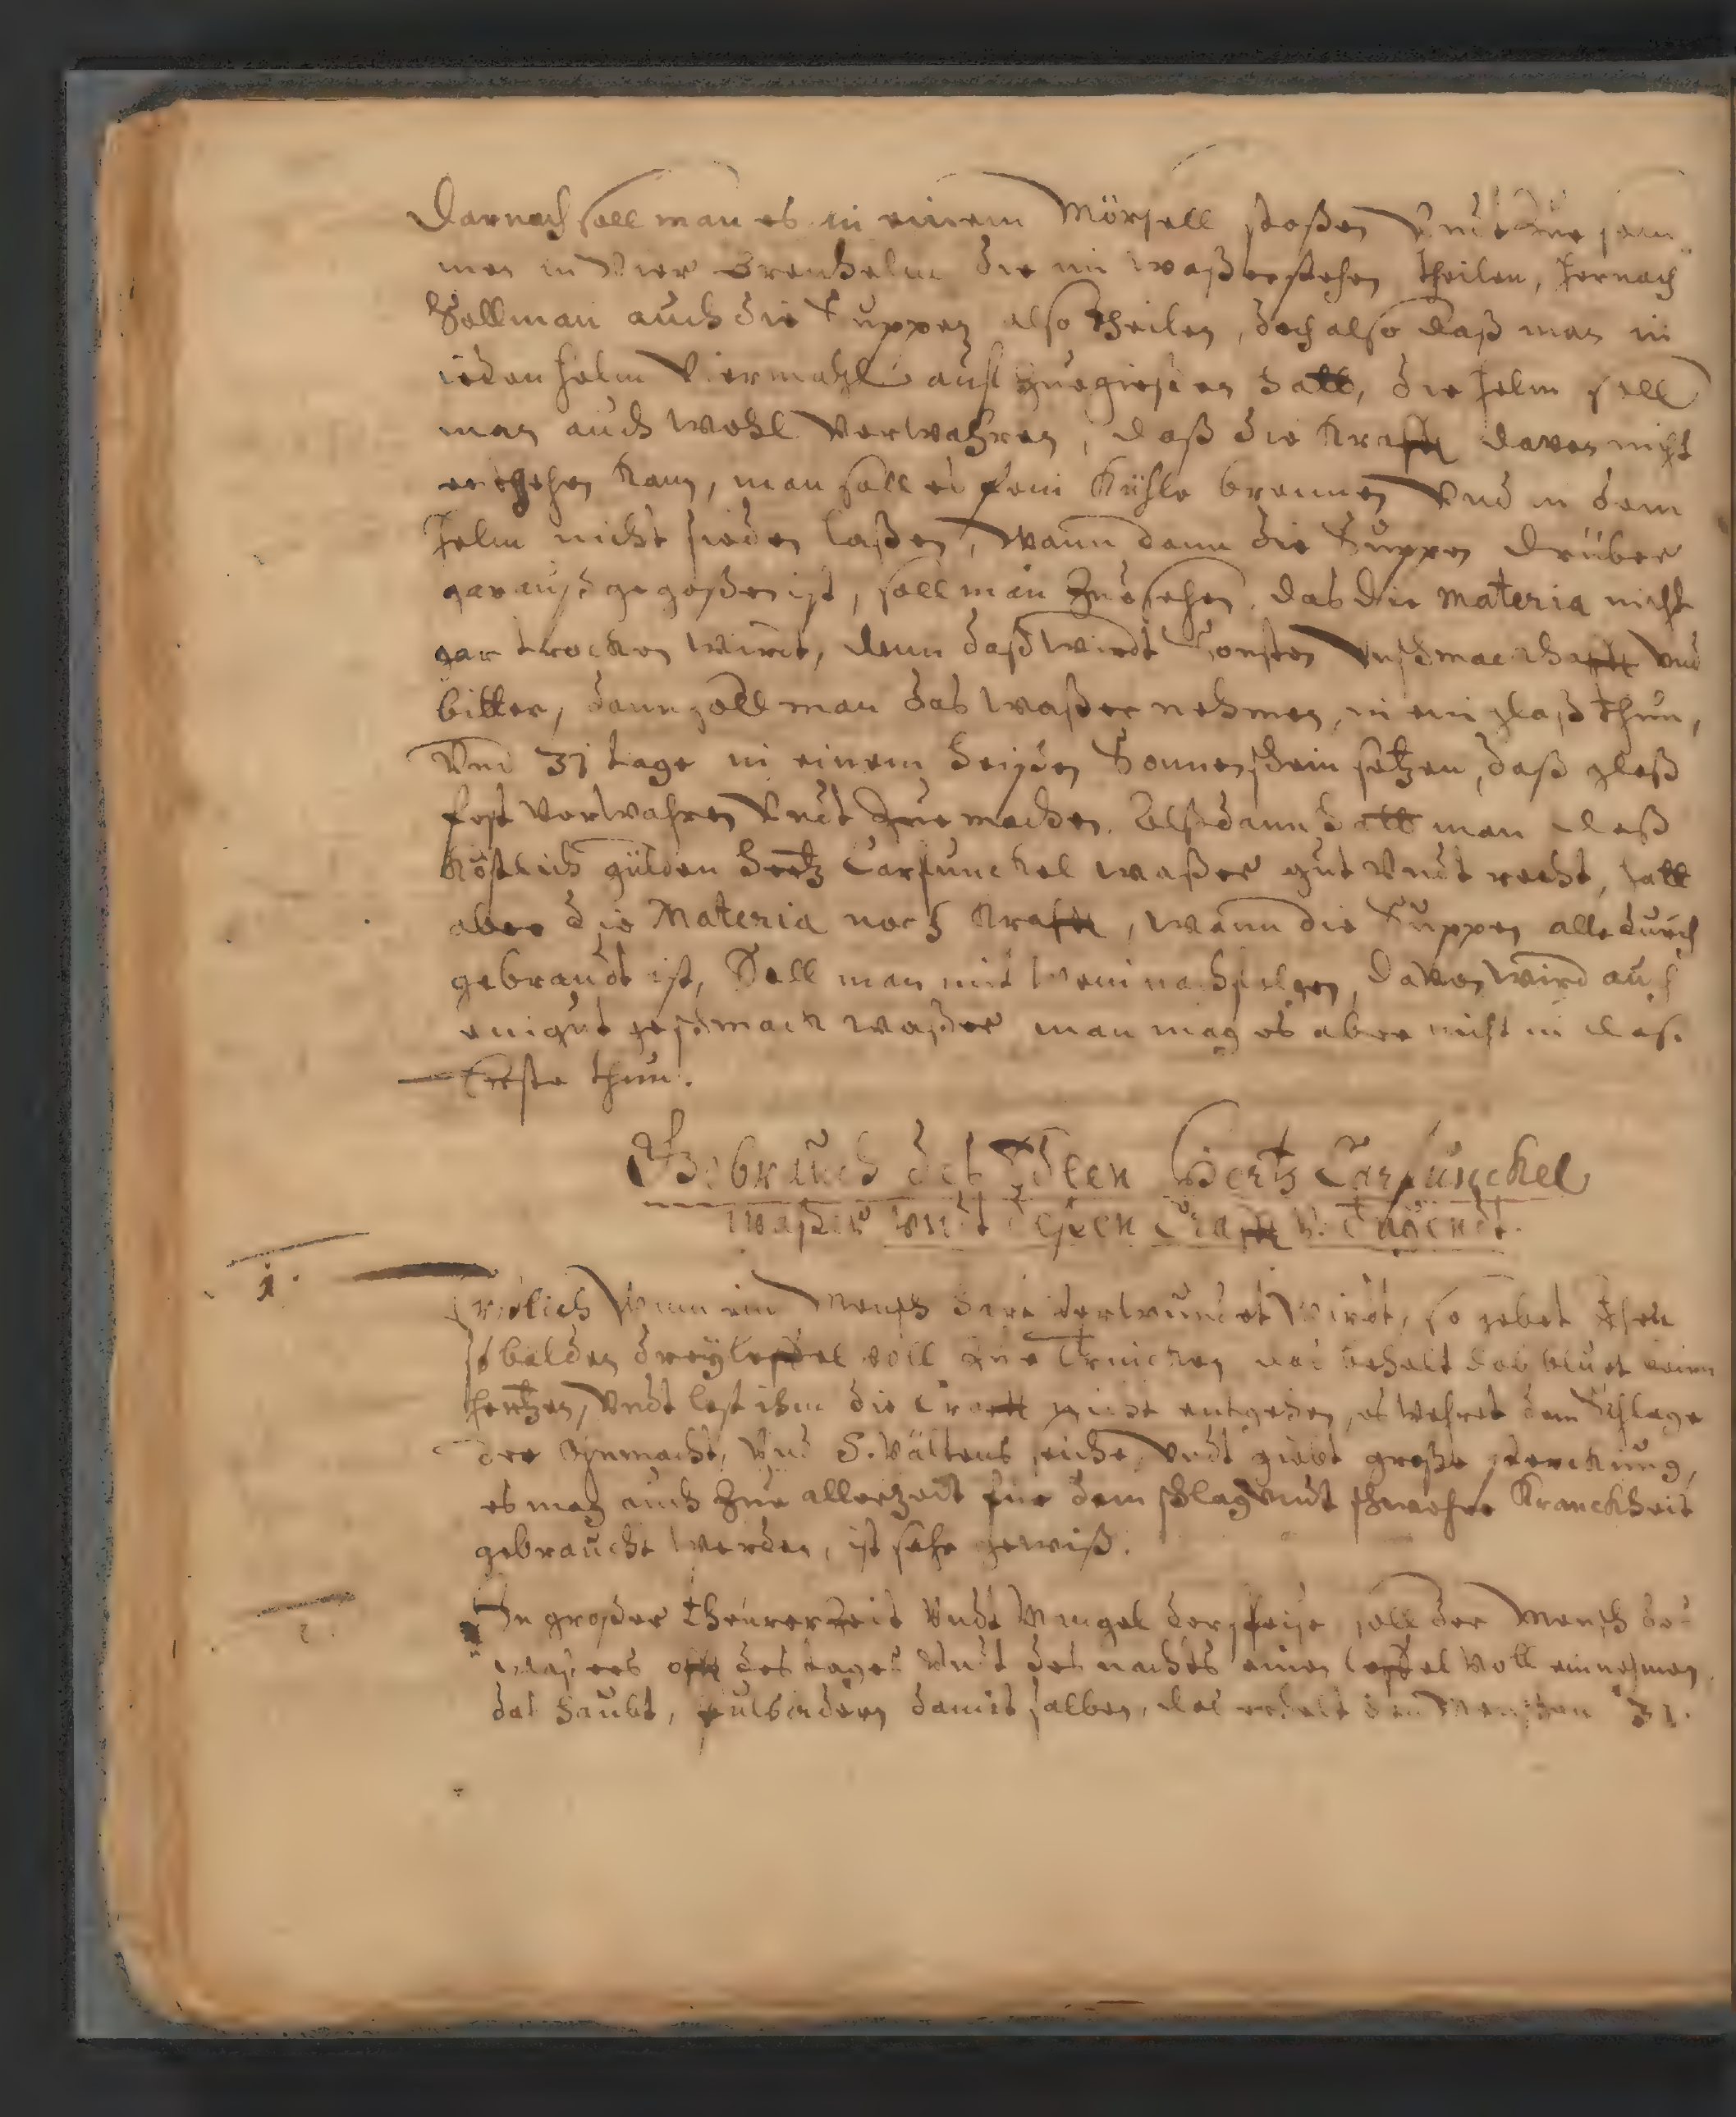 Darnach soll man es in einem Mörsell stoßen Vndt Zue sam¬
men in Vier Brenhelm die im waßer stehen theilen, hernach
Soll man auch die Suppen also theilen, doch also daß man in
ieden helm Viermahl auff Zuegießen hatt, die helm soll
man auch wohl Verwahren, daß die Krafft davon nicht
entgehen kann, man soll es fein kühle brennen Vnd in dem
helm nicht sieden laßen, Wann dann die Suppen drüber
gar auß gegoßen ist, soll man Zuesehen, das die Materia nicht
gar trocken wirdt, denn daß wirdt Sonsten Vnschmackhafft Vnd
bitter, dann soll man das waßer nehmen, in ein glaß thun,
Vnd 31 tage in einem heißen Sonnenschein setzen, daß glaß
fest Verwahren Vndt Zue machen. Alßdann hatt man daß
Köstlich gülden Hertz Carfunckel waßer gut Vndt recht, hatt
aber die Materia noch Krafft, wann die Suppen alle durch
gebrandt ist, Soll man mit Wein nachfolgen, davon wird auch
ein gut geschmack waßer man mag es aber nicht in das
Erste thun.
Gebrauch des Edlen Hertz Carfunckel
waßer Vndt deßen Crafft V. Tugendt.
1.
Erstlich Wenn ein Mensch hart Verwundet wirdt, so gebet ihm
so balden drey leffel voll Zue Trincken das behelt das bluet beim
hertzen, Vndt lest ihm die Crafft nicht entgehen, es wehret dem Schlage
der Ohnmacht, Vnd S. Vältens seuche, Vndt giebt große sterckung,
es mag auch Zue aller Zeit für dem schlag Vndt schwehre Kranckheit
gebraucht werden, ist sehr gewiß.
2.
In großer Theurer Zeit Vndt Mangel der speise, soll der Mensch des
waßers offt des tages Vndt des nachts einen leffel Voll einnehmen,
das haubt, pulsadern damit salben, das erhelt den Menschen 31.